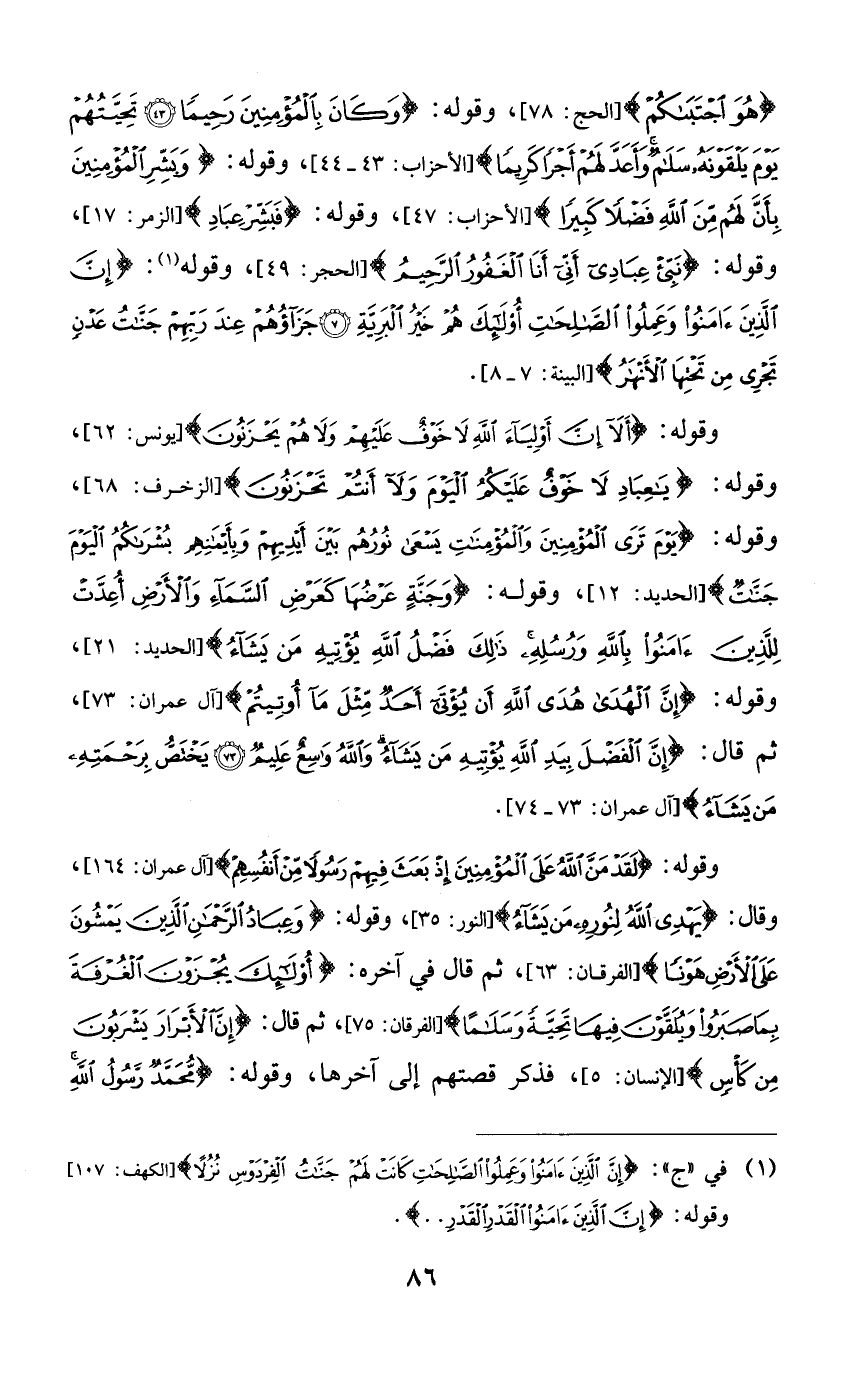 ﴿هُوَ ٱجۡتَبَىٰكُمۡ﴾ [الحج: ٧٨]، وقوله: ﴿وَكَانَ بِٱلۡمُؤۡمِنِينَ رَحِيمٗا ٤٣ تَحِيَّتُهُمۡ
يَوۡمَ يَلۡقَوۡنَهُۥ سَلَٰمٞۚ وَأَعَدَّ لَهُمۡ أَجۡرٗا كَرِيمٗا﴾ [الأحزاب: ٤٣ ـ ٤٤]، وقوله: ﴿وَبَشِّرِ ٱلۡمُؤۡمِنِينَ
بِأَنَّ لَهُم مِّنَ ٱللَّهِ فَضۡلٗا كَبِيرٗا﴾ [الأحزاب: ٤٧]، وقوله: ﴿فَبَشِّرۡ عِبَادِ﴾ [الزمر: ١٧]،
وقوله: ﴿نَبِّئۡ عِبَادِيٓ أَنِّيٓ أَنَا ٱلۡغَفُورُ ٱلرَّحِيمُ﴾ [الحجر: ٤٩]، وقوله(١): ﴿إِنَّ
ٱلَّذِينَ ءَامَنُواْ وَعَمِلُواْ ٱلصَّٰلِحَٰتِ أُوْلَٰٓئِكَ هُمۡ خَيۡرُ ٱلۡبَرِيَّةِ ٧ جَزَآؤُهُمۡ عِندَ رَبِّهِمۡ جَنَّٰتُ عَدۡنٖ
تَجۡرِي مِن تَحۡتِهَا ٱلۡأَنۡهَٰرُ﴾ [البينة: ٧ ـ ٨].
وقوله: ﴿أَلَآ إِنَّ أَوۡلِيَآءَ ٱللَّهِ لَا خَوۡفٌ عَلَيۡهِمۡ وَلَا هُمۡ يَحۡزَنُونَ﴾ [يونس: ٦٢]،
وقوله: ﴿يَٰعِبَادِ لَا خَوۡفٌ عَلَيۡكُمُ ٱلۡيَوۡمَ وَلَآ أَنتُمۡ تَحۡزَنُونَ﴾ [الزخرف: ٦٨]،
وقوله: ﴿يَوۡمَ تَرَى ٱلۡمُؤۡمِنِينَ وَٱلۡمُؤۡمِنَٰتِ يَسۡعَىٰ نُورُهُم بَيۡنَ أَيۡدِيهِمۡ وَبِأَيۡمَٰنِهِم بُشۡرَىٰكُمُ ٱلۡيَوۡمَ
جَنَّٰتٞ﴾ [الحديد: ١٢]، وقوله: ﴿وَجَنَّةٍ عَرۡضُهَا كَعَرۡضِ ٱلسَّمَآءِ وَٱلۡأَرۡضِ أُعِدَّتۡ
لِلَّذِينَ ءَامَنُواْ بِٱللَّهِ وَرُسُلِهِۦۚ ذَٰلِكَ فَضۡلُ ٱللَّهِ يُؤۡتِيهِ مَن يَشَآءُ﴾ [الحديد: ٢١]،
وقوله: ﴿إِنَّ ٱلۡهُدَىٰ هُدَى ٱللَّهِ أَن يُؤۡتَىٰٓ أَحَدٞ مِّثۡلَ مَآ أُوتِيتُمۡ﴾ [آل عمران: ٧٣]،
ثم قال: ﴿إِنَّ ٱلۡفَضۡلَ بِيَدِ ٱللَّهِ يُؤۡتِيهِ مَن يَشَآءُۗ وَٱللَّهُ وَٰسِعٌ عَلِيمٞ ٧٣ يَخۡتَصُّ بِرَحۡمَتِهِۦ
مَن يَشَآءُ﴾ [آل عمران: ٧٣ ـ ٧٤].
وقوله: ﴿لَقَدۡ مَنَّ ٱللَّهُ عَلَى ٱلۡمُؤۡمِنِينَ إِذۡ بَعَثَ فِيهِمۡ رَسُولٗا مِّنۡ أَنفُسِهِمۡ﴾ [آل عمران: ١٦٤]،
وقال: ﴿يَهۡدِي ٱللَّهُ لِنُورِهِۦ مَن يَشَآءُ﴾ [النور: ٣٥]، وقوله: ﴿وَعِبَادُ ٱلرَّحۡمَٰنِ ٱلَّذِينَ يَمۡشُونَ
عَلَى ٱلۡأَرۡضِ هَوۡنٗا﴾ [الفرقان: ٦٣]، ثم قال في آخره: ﴿أُوْلَٰٓئِكَ يُجۡزَوۡنَ ٱلۡغُرۡفَةَ
بِمَا صَبَرُواْ وَيُلَقَّوۡنَ فِيهَا تَحِيَّةٗ وَسَلَٰمًا﴾ [الفرقان: ٧٥]، ثم قال: ﴿إِنَّ ٱلۡأَبۡرَارَ يَشۡرَبُونَ
مِن كَأۡسٖ﴾ [الإنسان: ٥]، فذكر قصتهم إلى آخرها، وقوله: ﴿مُّحَمَّدٞ رَّسُولُ ٱللَّهِۚ
(١) في «ج»: ﴿إِنَّ ٱلَّذِينَ ءَامَنُواْ وَعَمِلُواْ ٱلصَّٰلِحَٰتِ كَانَتۡ لَهُمۡ جَنَّٰتُ ٱلۡفِرۡدَوۡسِ نُزُلًا﴾ [الكهف: ١٠٧]
وقوله: ﴿إِنَّ ٱلَّذِينَ ءَامَنُواْ ٱلۡقَدۡرِ ٱلۡقَدۡرِ..﴾.
٨٦